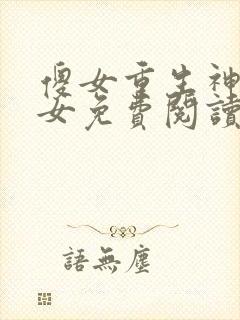 傻女重生神
女免費閱讀
語無塵